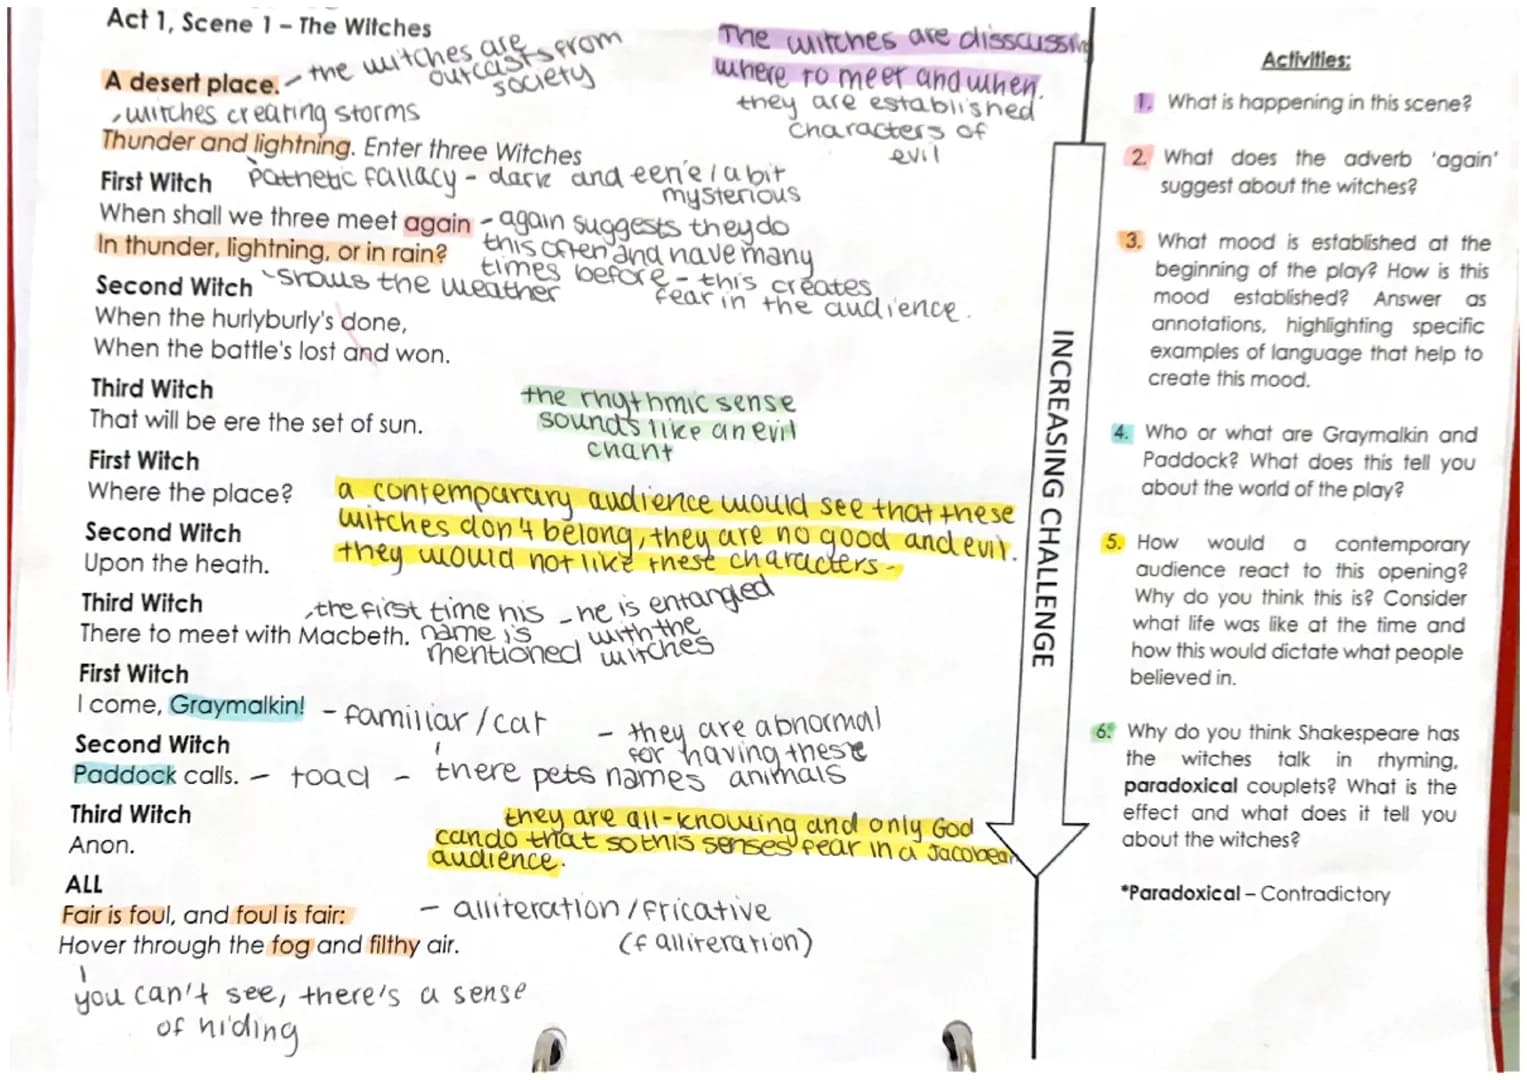 Act 1, Scene 1 – The Witches
A desert place. – the witches are outcasts from
society
witches creating storms
Thunder and lightning. Enter three Witches
pathetic fallacy - dark and eerie / a bit
mysterious
First Witch
When shall we three meet again - again suggests they do
In thunder, lightning, or in rain? this often and have many
times before - this creates
fear in the audience.
shows the weather
Second Witch
When the hurlyburly's done,
When the battle's lost and won.
Third Witch
That will be ere the set of sun.
First Witch
Where the place?
Second Witch
Upon the heath.
Third Witch
There to meet with Macbeth.
the first time his
name is
mentioned
- he is entangled
with the
witches
First Witch
I come, Graymalkin! - familiar / cat
- they are abnormal
for having these
animals
Second Witch
Paddock calls. - toad - there pets names
Third Witch
Anon.
ALL
Fair is foul, and foul is fair: - alliteration / fricative
(f alliteration)
Hover through the fog and filthy air.
you can't see, there's a sense
of hiding
The witches are disscussing
where to meet and when.
they are established
characters of
evil
the rhythmic sense
sounds like an evil
chant
a contempurary audience would see that these
witches don't belong, they are no good and evil.
they would not like these characters -
they are all-knowing and only God
can do that so this senses fear in a Jacobean
audience.
INCREASING CHALLENGE
Activities:
1. What is happening in this scene?
2. What does the adverb 'again'
suggest about the witches?
3. What mood is established at the
beginning of the play? How is this
mood established? Answer as
annotations, highlighting specific
examples of language that help to
create this mood.
4. Who or what are Graymalkin and
Paddock? What does this tell you
about the world of the play?
5. How would a contemporary
audience react to this opening?
Why do you think this is? Consider
what life was like at the time and
how this would dictate what people
believed in.
6. Why do you think Shakespeare has
the witches talk in rhyming,
paradoxical couplets? What is the
effect and what does it tell you
about the witches?
*Paradoxical – Contradictory